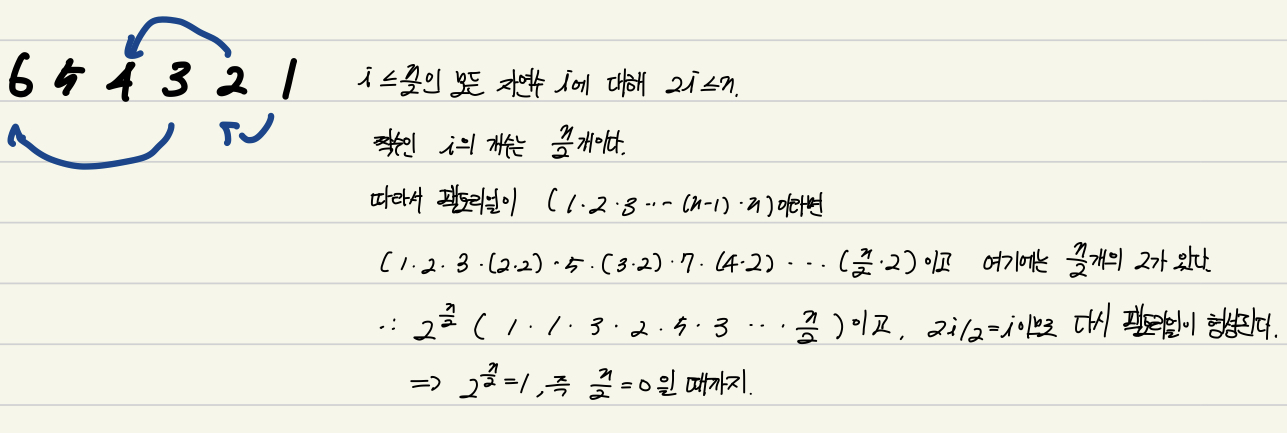 6 5 4 3 2 1
i ≤ n/2인 모든 자연수 i에 대해 2i ≤ n.
짝수인 i의 개수는 n/2개이다.
따라서 팩토리얼이 (1·2·3···(n-1)·n)이라면
(1·2·3·(2·2)·5·(3·2)·7·(4·2)···(n/2·2)이고 여기에는 n/2개의 2가 있다.
∴ 2^(n/2) (1·1·3·2·5·3···n/2)이고, 2i/2=i이므로 다시 팩토리얼이 형성된다.
=> 2^(n/2)=1, 즉 n/2=0일 때까지.